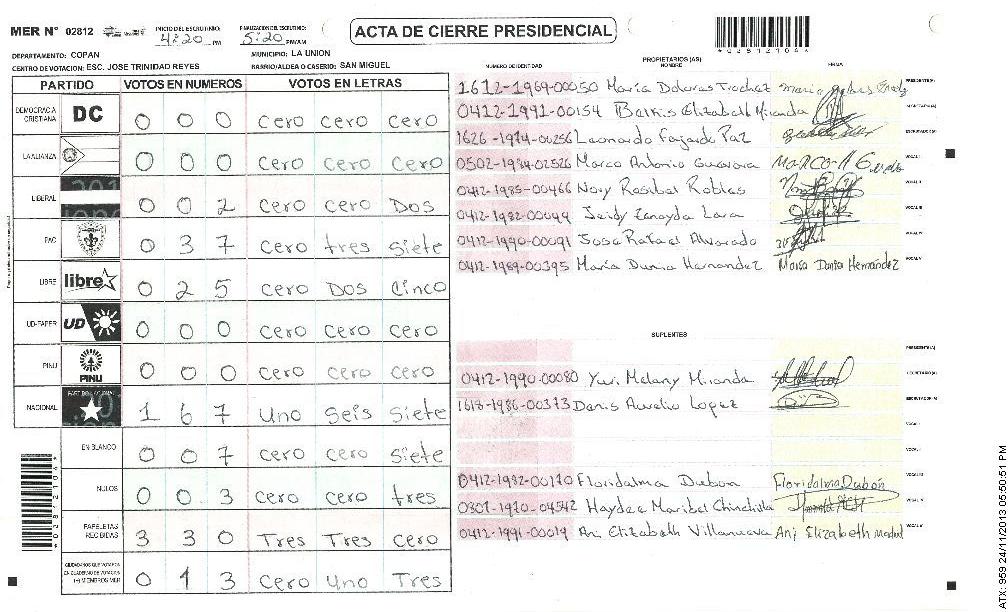 MER N° 02812
INICIO DEL ESCRUTINIO: 4:20 PM
FINALIZACION DEL ESCRUTINIO: 5:20 PM/AM
ACTA DE CIERRE PRESIDENCIAL
DEPARTAMENTO: COPAN
MUNICIPIO: LA UNION
CENTRO DE VOTACION: ESC. JOSE TRINIDAD REYES
BARRIO/ALDEA O CASERIO: SAN MIGUEL
PARTIDO VOTOS EN NUMEROS VOTOS EN LETRAS
DEMOCRACIA CRISTIANA DC 0 0 0 cero cero cero
LA ALIANZA 0 0 0 cero cero cero
LIBERAL 0 0 2 cero cero Dos
PAC 0 3 7 cero tres siete
LIBRE libre 0 2 5 cero Dos Cinco
UD-FAPER UD 0 0 0 cero cero cero
PINU PINU 0 0 0 cero cero cero
NACIONAL 1 6 7 uno seis siete
EN BLANCO 0 0 7 cero cero siete
NULOS 0 0 3 cero cero tres
PAPELETAS RECIBIDAS 3 3 0 Tres Tres cero
CIUDADANOS QUE VOTARON EN CUADERNO DE VOTACION (+) MIEMBROS MER 0 1 3 cero uno Tres
PROPIETARIOS (AS)
NUMERO DE IDENTIDAD NOMBRE FIRMA
1612-1969-00050 María Dolores Trochez PRESIDENTE(A)
0412-1991-00154 Belkis Elizabeth Miranda SECRETARIO(A)
1626-1974-00256 Leonardo Fajardo Paz ESCRUTADOR(A)
0502-1984-02526 Marco Antonio Guevara VOCAL I
0412-1985-00466 Rosibel Robles VOCAL II
0412-1982-00099 Zenayda Lara VOCAL III
0412-1990-00091 Jose Rafael Alvarado VOCAL IV
0412-1989-00395 María Dunia Hernandez María Dunia Hernández VOCAL V
SUPLENTES
PRESIDENTE(A)
0412-1990-00080 Yuri Melany Miranda SECRETARIO(A)
1618-1986-00373 Denis Aurelio Lopez ESCRUTADOR(A)
VOCAL I
VOCAL II
0412-1982-00170 Floridalma Dubon Floridalma Dubón VOCAL III
0301-1970-04542 Haydee Maribel Chinchilla VOCAL IV
0412-1991-00019 Ani Elizabeth Villanueva Ani Elizabeth VOCAL V
028121064
ATX: 959 24/11/2013 05:50:51 PM